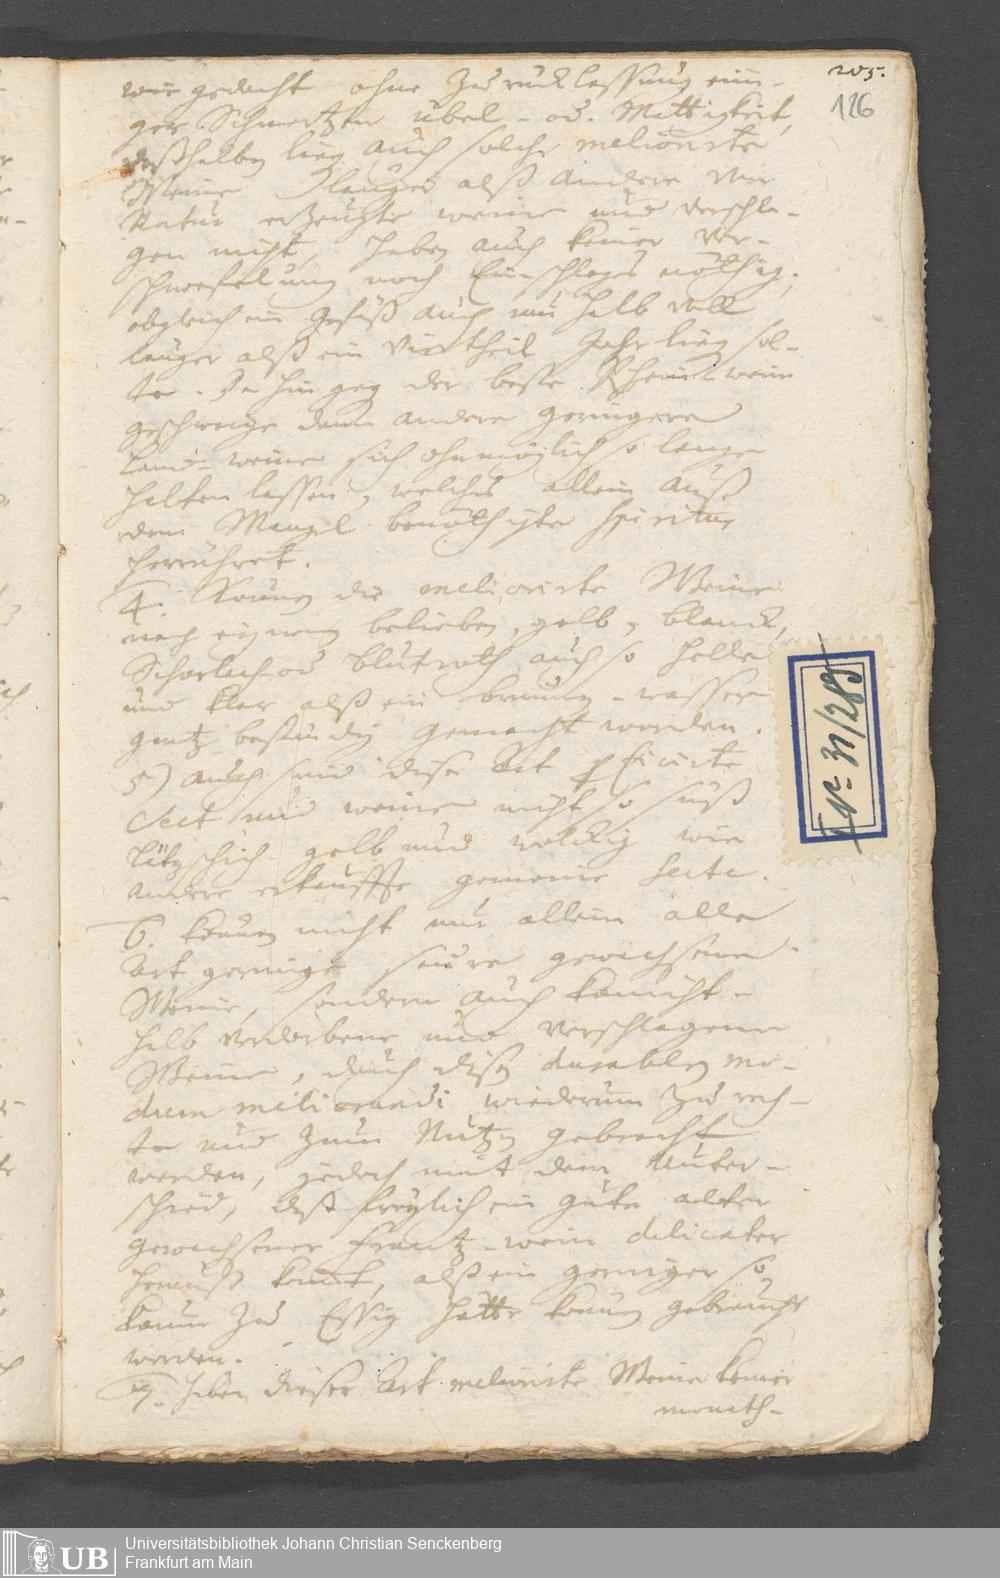 205.
126
wie gedacht ohne Zurücklassung eini-
ger Schmertzen übel- od. Mattigkeit,
deßhalben lieg auch solche meliorirte
Weine länger alß andere von
Natur erzeugte weine und verschla-
gen nicht, haben auch keiner Ver-
schwefelung noch Einschlages nöthig,
obgleich ein Gefäß auch nur halb voll
länger alß ein Viertheil Jahr lieg sol-
te. Da hingeg der beste Rheinwein
geschweige dann andere geringere
Land-weine sich ohnmöglich so lange
halten lassen, welches allein auß
dem Mangel benöthigte Spiritus
herrühret.
4. Können die meliorirte Weine
nach eigenem belieben, gelb, blanck,
Scharlach- od blutroth auch so helle
und klar alß ein brunnen-wasser
gantz beständig gemacht werden.
5) auch sind diese Art
Sect und weine nicht so süß
gelb und wie
andere gemeine Secte.
6. können nicht nur allein alle
Art geringe saure gewachsene
Weine, sondern auch
halb verdorbene und verschlagene
Weine, durch diesen durablen mo-
dum meliorandi wiederum zu rech-
te und zum Nutzen gebracht
werden, jedoch mit dem Unter-
schied, daß freylich ein guter alter
gewachsener Frantz-wein delicater
herauß kommt, alß ein geringer so
kaum zu Essig hätte können gebraucht
werden.
7. haben dieser Art meliorirte Weine keine
No 31/285
Universitätsbibliothek Johann Christian Senckenberg
Frankfurt am Main
UB